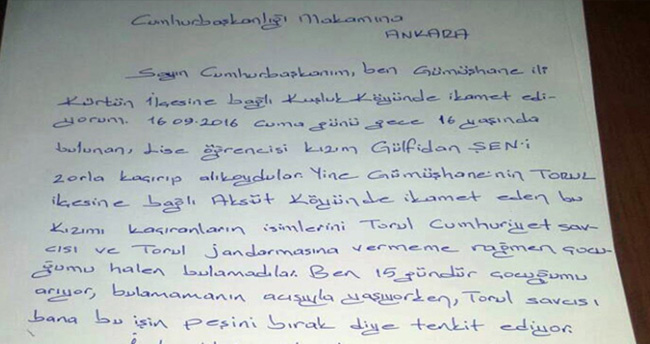 Cumhurbaşkanlığı Makamına
ANKARA
Sayın Cumhurbaşkanım, ben Gümüşhane ili
Kürtün İlçesine bağlı Kuşluk Köyünde ikamet edi-
yorum. 16.09.2016 cuma günü gece 16 yaşında
bulunan, Lise öğrencisi kızım Gülfidan ŞEN'i
zorla kaçırıp alıkoydular. Yine Gümüşhane'nin TORUL
ilçesine bağlı Aksüt Köyünde ikamet eden bu
kızımı kaçıranların isimlerini Torul Cumhuriyet sav-
cısı ve Torul jandarmasına vermeme rağmen çocu-
ğumu halen bulamadılar. Ben 15 gündür çocuğumu
arıyor, bulamamanın acısıyla yaşıyorken, Torul savcısı
bana bu işin peşini bırak diye tenkit ediyor.